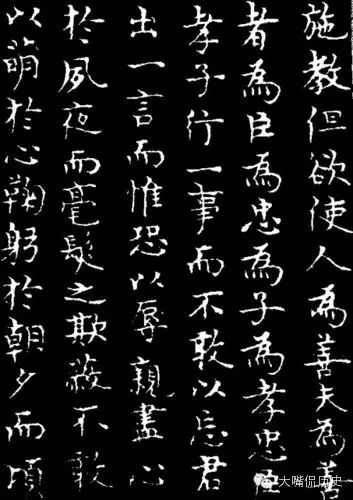 施教但欲使人為善夫為善
者為臣為忠為子為孝忠臣
孝子行一事而不敢以忘君
出一言而惟恐以辱親盡心
於夙夜而毫髮之欺蔽不敢
以萌於心鞠躬於朝夕而頃
大嘴侃历史